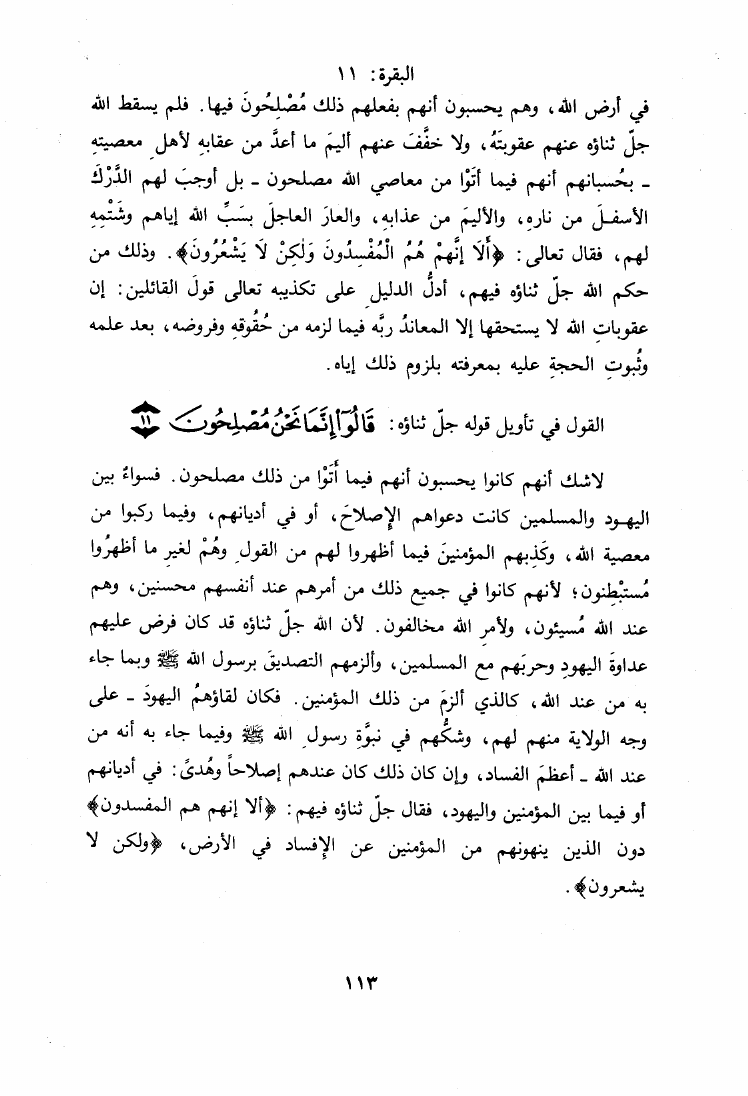 البقرة: ١١
في أرض الله، وهم يحسبون أنهم بفعلهم ذلك مُصْلِحُونَ فيها. فلم يسقط الله
جلّ ثناؤه عنهم عقوبتَهُ، ولا خفَّفَ عنهم أليمَ ما أعدَّ من عقابهِ لأهلِ معصيتهِ
ـ بحُسبانهم أنهم فيما أتَوْا من معاصي الله مصلحون ـ بل أوجبَ لهم الدَّرْكَ
الأسفلَ من نارهِ، والأليمَ من عذابهِ، والعارَ العاجلَ بسَبِّ الله إياهم وشَتْمِهِ
لهم، فقال تعالى: ﴿أَلَا إِنَّهمْ هُمُ الْمُفْسِدُونَ وَلٰكِنْ لَا يَشْعُرُونَ﴾. وذلك من
حكم الله جلّ ثناؤه فيهم، أدلُّ الدليلِ على تكذيبه تعالى قولَ القائلين: إن
عقوباتِ الله لا يستحقها إلا المعاندُ ربَّه فيما لزمه من حُقُوقهِ وفروضه، بعد علمه
وثُبوتِ الحجةِ عليه بمعرفته بلزوم ذلك إياه.
القول في تأويل قوله جلّ ثناؤه: قَالُوٓاْ إِنَّمَا نَحۡنُ مُصۡلِحُونَ ١١
لاشك أنهم كانوا يحسبون أنهم فيما أتَوْا من ذلك مصلحون. فسواءٌ بين
اليهود والمسلمين كانت دعواهم الإصلاحَ، أو في أديانهم، وفيما ركبوا من
معصية الله، وكَذِبهم المؤمنينَ فيما أظهروا لهم من القولِ وهُمْ لغيرِ ما أظهرُوا
مُستبْطِنون؛ لأنهم كانوا في جميع ذلك من أمرهم عند أنفسهم محسنين، وهم
عند الله مُسيئون، ولأمرِ الله مخالفون. لأن الله جلّ ثناؤه قد كان فرض عليهم
عداوةَ اليهودِ وحربَهم مع المسلمين، وألزمهم التصديقَ برسول الله ﷺ وبما جاء
به من عند الله، كالذي ألزمَ من ذلك المؤمنين. فكان لقاؤهمُ اليهودَ ـ على
وجه الولاية منهم لهم، وشكُّهم في نبوَّةِ رسولِ الله ﷺ وفيما جاء به أنه من
عند الله ـ أعظمَ الفساد، وإن كان ذلك كان عندهم إصلاحاً وهُدىً: في أديانهم
أو فيما بين المؤمنين واليهود، فقال جلّ ثناؤه فيهم: ﴿ألا إنهم هم المفسدون﴾
دون الذين ينهونهم من المؤمنين عن الإفساد في الأرض، ﴿ولكن لا
يشعرون﴾.
١١٣